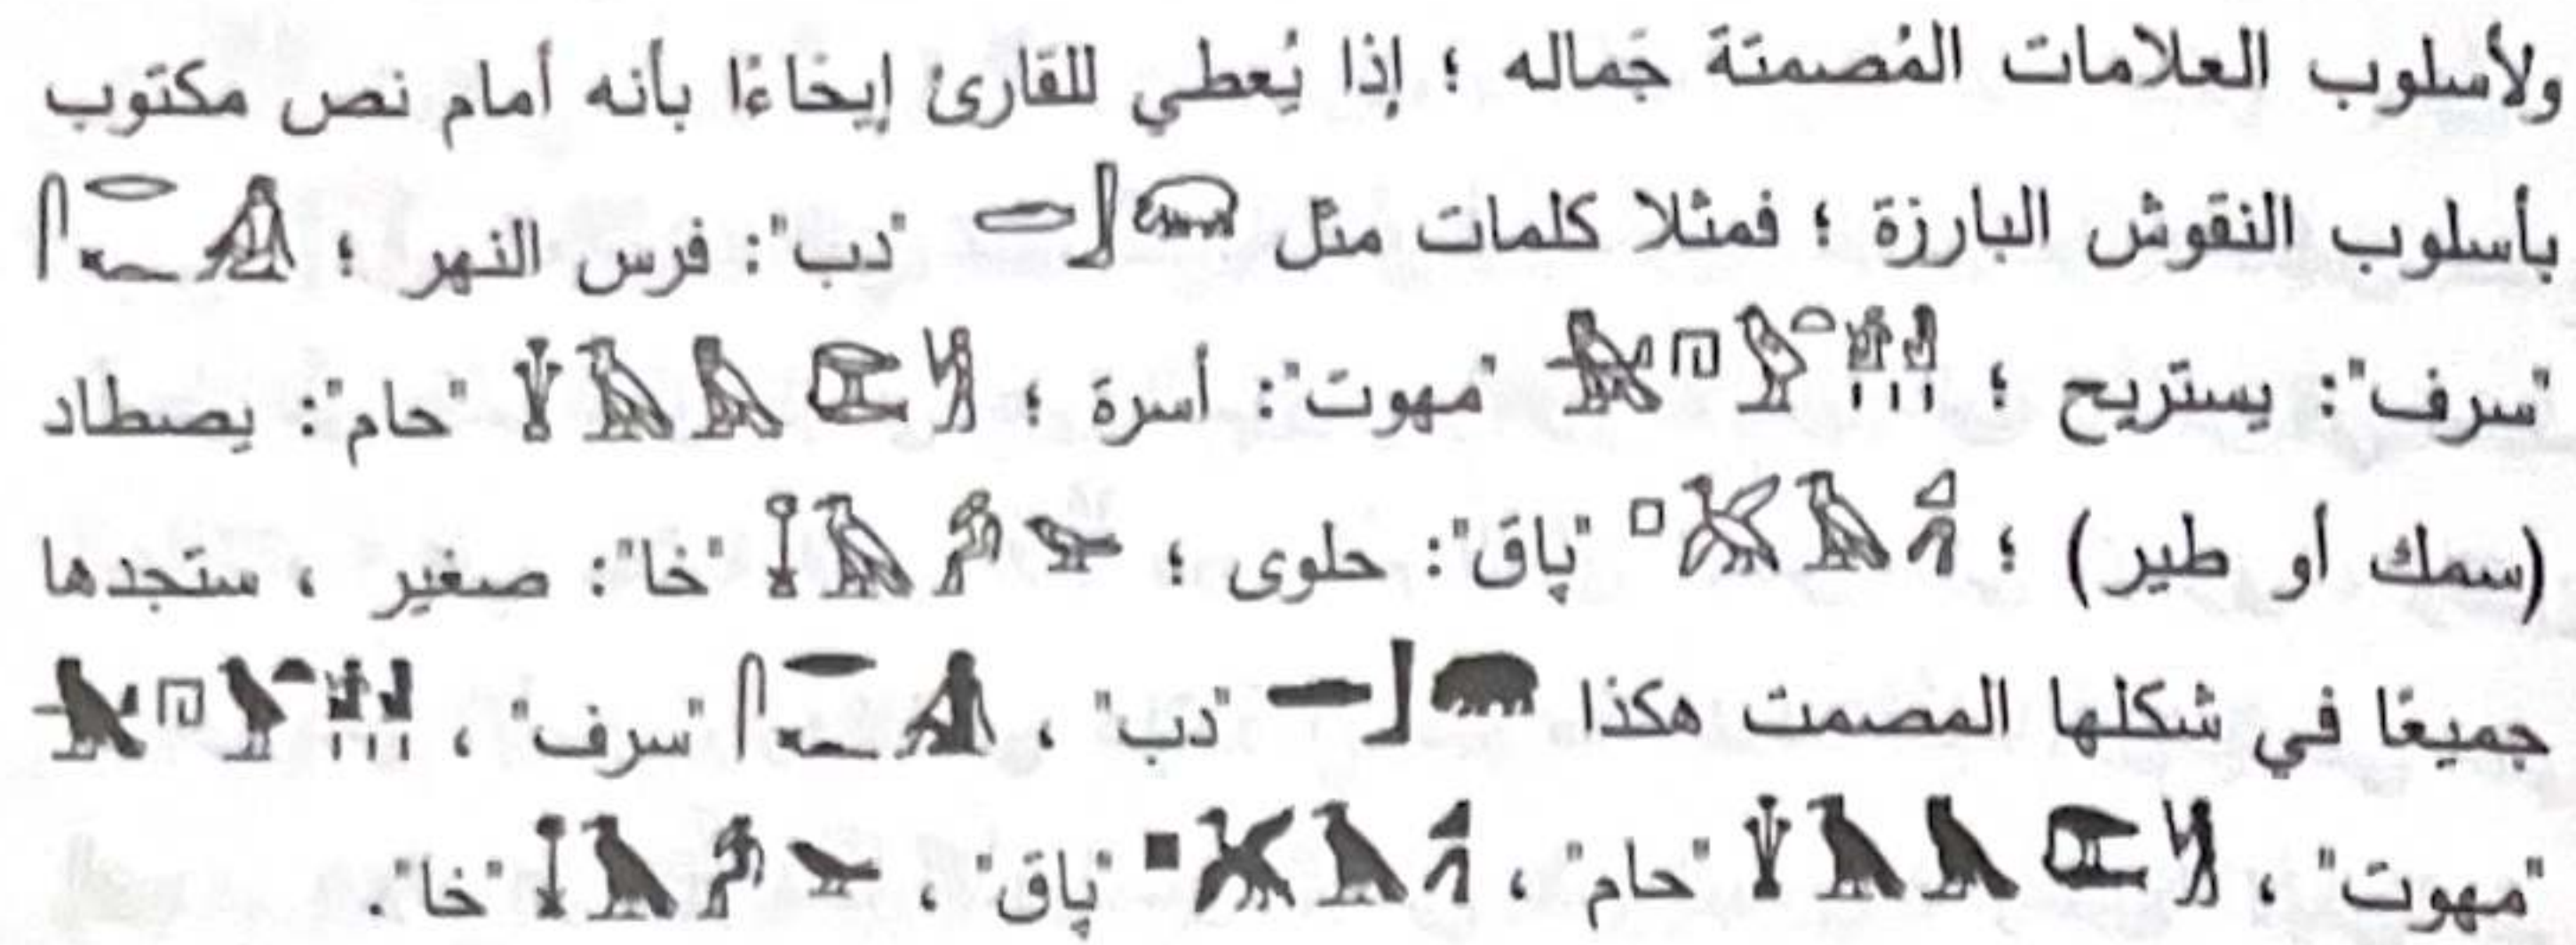 ولأسلوب العلامات المُصمتة جَماله ؛ إذا يُعطي للقارئ إيحَاءًا بأنه أمام نص مكتوب
بأسلوب النقوش البارزة ؛ فمثلا كلمات مثل "دب": فرس النهر ؛
"سرف": يستريح ؛ "مهوت": أسرة ؛ "حام": يصطاد
(سمك أو طير) ؛ "پاق": حلوى ؛ "خا": صغير ، ستجدها
جميعًا في شكلها المصمت هكذا "دب" ، "سرف" ،
"مهوت" ، "حام" ، "پاق" ، "خا".